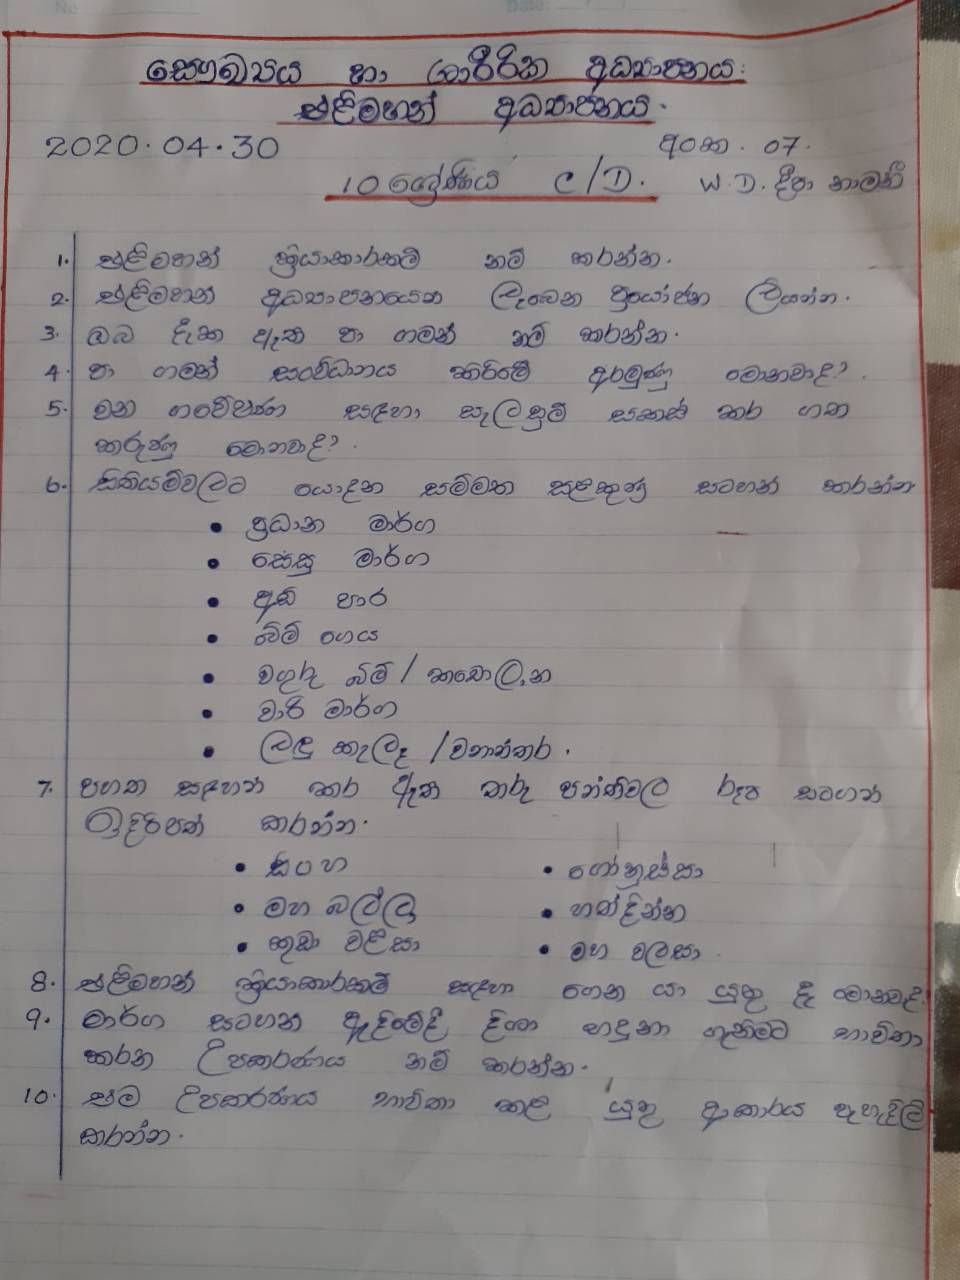 සෞඛ්‍යය හා ශාරීරික අධ්‍යාපනය.
එළිමහන් අධ්‍යාපනය.
2020.04.30 අංක. 07.
10 ශ්‍රේණිය C/D. W.D. දීපා නාමනී
1. එළිමහන් ක්‍රියාකාරකම් නම් කරන්න.
2. එළිමහන් අධ්‍යාපනයෙන් ලැබෙන ප්‍රයෝජන ලියන්න.
3. ඔබ දැක ඇති පා ගමන් නම් කරන්න.
4. පා ගමන් සංවිධානය කිරීමේ අරමුණු මොනවාද?
5. වන ගවේෂණ සඳහා සැලසුම් සකස් කර ගත
කරුණු මොනවාද?
6. සිතියම්වලට යොදන සම්මත සළකුණු සටහන් කරන්න
• ප්‍රධාන මාර්ග
• සෙසු මාර්ග
• අඩි පාර
• බිම් ගෙය
• වගුරු බිම් / කඩොලාන
• වාරි මාර්ග
• ලඳු කැලෑ / වනාන්තර.
7. පහත සඳහන් කර ඇති තරු පන්තිවල රූප සටහන්
ඉදිරිපත් කරන්න.
• සිංහ • ගෝනුස්සා
• මහ බල්ලා • හත්දින්න
• කුඩා වළසා • මහ වලසා.
8. එළිමහන් ක්‍රියාකාරකම් සඳහා ගෙන යා යුතු දෑ මොනවාද.
9. මාර්ග සටහන ඇදීමේදී දිශා හඳුනා ගැනීමට භාවිතා
කරන උපකරණය නම් කරන්න.
10. එම උපකරණය භාවිතා කළ යුතු ආකාරය පැහැදිලි
කරන්න.